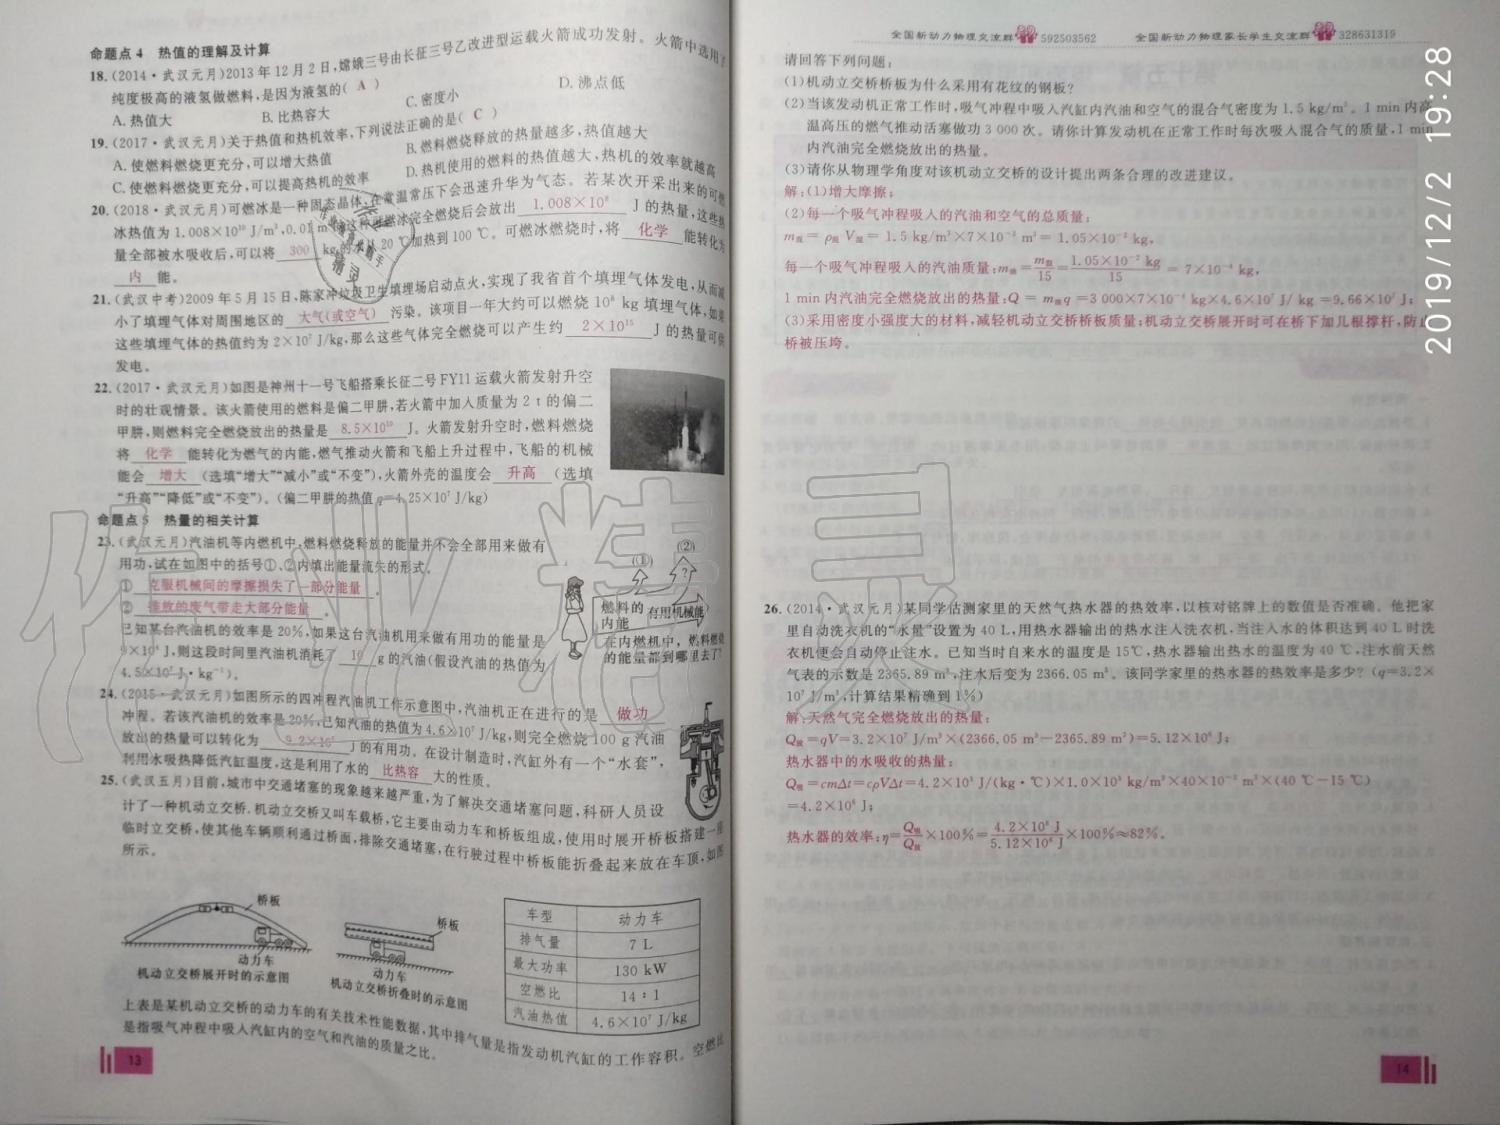 命题点4 热值的理解及计算
18.(2014·武汉元月)2013年12月2日,嫦娥三号由长征三号乙改进型运载火箭成功发射。火箭中选用了
纯度极高的液氢做燃料,是因为液氢的( A )
A.热值大 B.比热容大 C.密度小 D.沸点低
19.(2017·武汉元月)关于热值和热机效率,下列说法正确的是( C )
A.使燃料燃烧更充分,可以增大热值 B.燃料燃烧释放的热量越多,热值越大
C.使燃料燃烧更充分,可以提高热机的效率 D.热机使用的燃料的热值越大,热机的效率就越高
20.(2018·武汉元月)可燃冰是一种固态晶体,在常温常压下会迅速升华为气态。若某次开采出来的可燃
冰热值为1.008×10¹⁰ J/m³,0.01 m³的这种可燃冰完全燃烧后会放出 1.008×10⁸ J的热量,这些热
量全部被水吸收后,可以将 300 kg的水从20 ℃加热到100 ℃。可燃冰燃烧时,将 化学 能转化为
内 能。
21.(武汉中考)2009年5月15日,陈家冲垃圾卫生填埋场启动点火,实现了我省首个填埋气体发电,从而减
小了填埋气体对周围地区的 大气(或空气) 污染。该项目一年大约可以燃烧10⁸ kg填埋气体,如果
这些填埋气体的热值约为2×10⁷ J/kg,那么这些气体完全燃烧可以产生约 2×10¹⁵ J的热量可供
发电。
22.(2017·武汉元月)如图是神州十一号飞船搭乘长征二号FY11运载火箭发射升空
时的壮观情景。该火箭使用的燃料是偏二甲肼,若火箭中加入质量为2 t的偏二
甲肼,则燃料完全燃烧放出的热量是 8.5×10¹⁰ J。火箭发射升空时,燃料燃烧
将 化学 能转化为燃气的内能,燃气推动火箭和飞船上升过程中,飞船的机械
能会 增大 (选填“增大”“减小”或“不变”),火箭外壳的温度会 升高 (选填
“升高”“降低”或“不变”)。(偏二甲肼的热值q=4.25×10⁷ J/kg)
命题点5 热量的相关计算
23.(武汉元月)汽油机等内燃机中,燃料燃烧释放的能量并不会全部用来做有
用功,试在如图中的括号①、②内填出能量流失的形式。
① 克服机械间的摩擦损失了一部分能量 。
② 排放的废气带走大部分能量 。
已知某台汽油机的效率是20%,如果这台汽油机用来做有用功的能量是
9×10⁴ J,则这段时间里汽油机消耗了 10 g的汽油(假设汽油的热值为
4.5×10⁷ J·kg⁻¹)。
(①)
(②)
?
燃料的内能
有用机械能
在内燃机中,燃料燃烧
的能量都到哪里去了?
24.(2015·武汉元月)如图所示的四冲程汽油机工作示意图中,汽油机正在进行的是 做功
冲程。若该汽油机的效率是20%,已知汽油的热值为4.6×10⁷ J/kg,则完全燃烧100 g汽油
放出的热量可以转化为 9.2×10⁵ J的有用功。在设计制造时,汽缸外有一个“水套”,
利用水吸热降低汽缸温度,这是利用了水的 比热容 大的性质。
25.(武汉五月)目前,城市中交通堵塞的现象越来越严重,为了解决交通堵塞问题,科研人员设
计了一种机动立交桥.机动立交桥又叫车载桥,它主要由动力车和桥板组成,使用时展开桥板搭建一座
临时立交桥,使其他车辆顺利通过桥面,排除交通堵塞,在行驶过程中桥板能折叠起来放在车顶,如图
所示。
桥板
动力车
机动立交桥展开时的示意图
桥板
动力车
机动立交桥折叠时的示意图
车型 动力车
排气量 7 L
最大功率 130 kW
空燃比 14∶1
汽油热值 4.6×10⁷ J/kg
上表是某机动立交桥的动力车的有关技术性能数据,其中排气量是指发动机汽缸的工作容积。空燃比
是指吸气冲程中吸入汽缸内的空气和汽油的质量之比。
13
全国新动力物理交流群 592503562 全国新动力物理家长学生交流群 328631319
请回答下列问题:
(1)机动立交桥桥板为什么采用有花纹的钢板?
(2)当该发动机正常工作时,吸气冲程中吸入汽缸内汽油和空气的混合气密度为1.5 kg/m³。1 min内高
温高压的燃气推动活塞做功3 000次。请你计算发动机在正常工作时每次吸入混合气的质量,1 min
内汽油完全燃烧放出的热量。
(3)请你从物理学角度对该机动立交桥的设计提出两条合理的改进建议。
解:(1)增大摩擦;
(2)每一个吸气冲程吸入的汽油和空气的总质量:
m混= ρ混 V混= 1.5 kg/m³×7×10⁻³ m³= 1.05×10⁻² kg,
每一个吸气冲程吸入的汽油质量:m燃=m混/15=1.05×10⁻² kg/15= 7×10⁻⁴ kg,
1 min内汽油完全燃烧放出的热量:Q = m燃q =3 000×7×10⁻⁴ kg×4.6×10⁷ J/ kg =9.66×10⁷ J;
(3)采用密度小强度大的材料,减轻机动立交桥桥板质量;机动立交桥展开时可在桥下加几根撑杆,防止
桥被压垮。
26.(2014·武汉元月)某同学估测家里的天然气热水器的热效率,以核对铭牌上的数值是否准确。他把家
里自动洗衣机的“水量”设置为40 L,用热水器输出的热水注入洗衣机,当注入水的体积达到40 L时洗
衣机便会自动停止注水。已知当时自来水的温度是15℃,热水器输出热水的温度为40 ℃,注水前天然
气表的示数是2365.89 m³,注水后变为2366.05 m³。该同学家里的热水器的热效率是多少?(q=3.2×
10⁷ J/m³,计算结果精确到1%)
解:天然气完全燃烧放出的热量:
Q放=qV=3.2×10⁷ J/m³×(2366.05 m³-2365.89 m³)=5.12×10⁶ J;
热水器中的水吸收的热量:
Q吸=cmΔt=cρVΔt=4.2×10³ J/(kg·℃)×1.0×10³ kg/m³×40×10⁻³ m³×(40 ℃-15 ℃)
=4.2×10⁶ J;
热水器的效率:η=Q吸/Q放×100%=4.2×10⁶ J/5.12×10⁶ J×100%≈82%。
14
2019/12/2 19:28
作业精灵